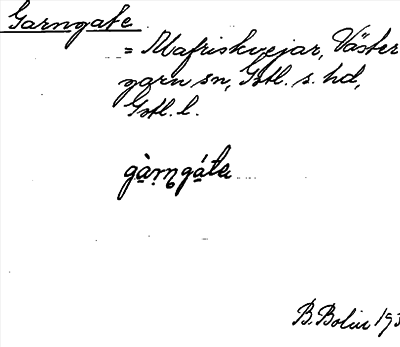 Garngate
= Mafriskvejar, Väster
garn sn, Gotl. s. hd,
Gotl. l.
gàrngáta
B. Bolin 193